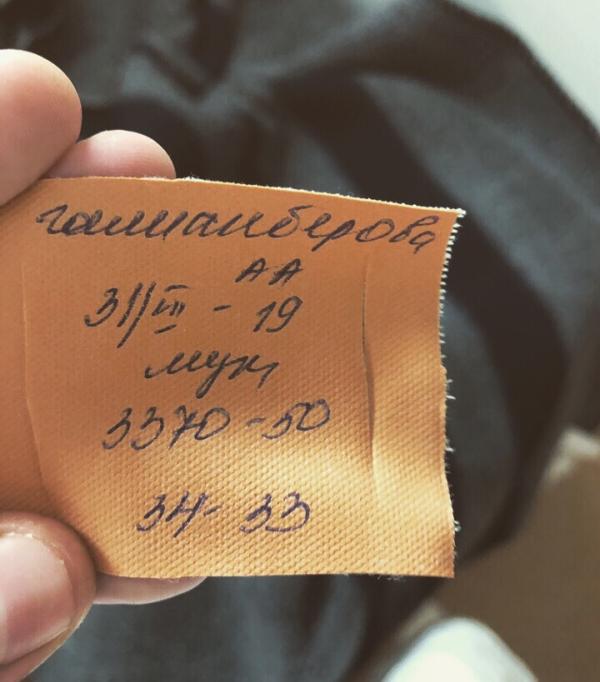 галиакберова
АА
31/III - 19
муж
3370-50
34-33